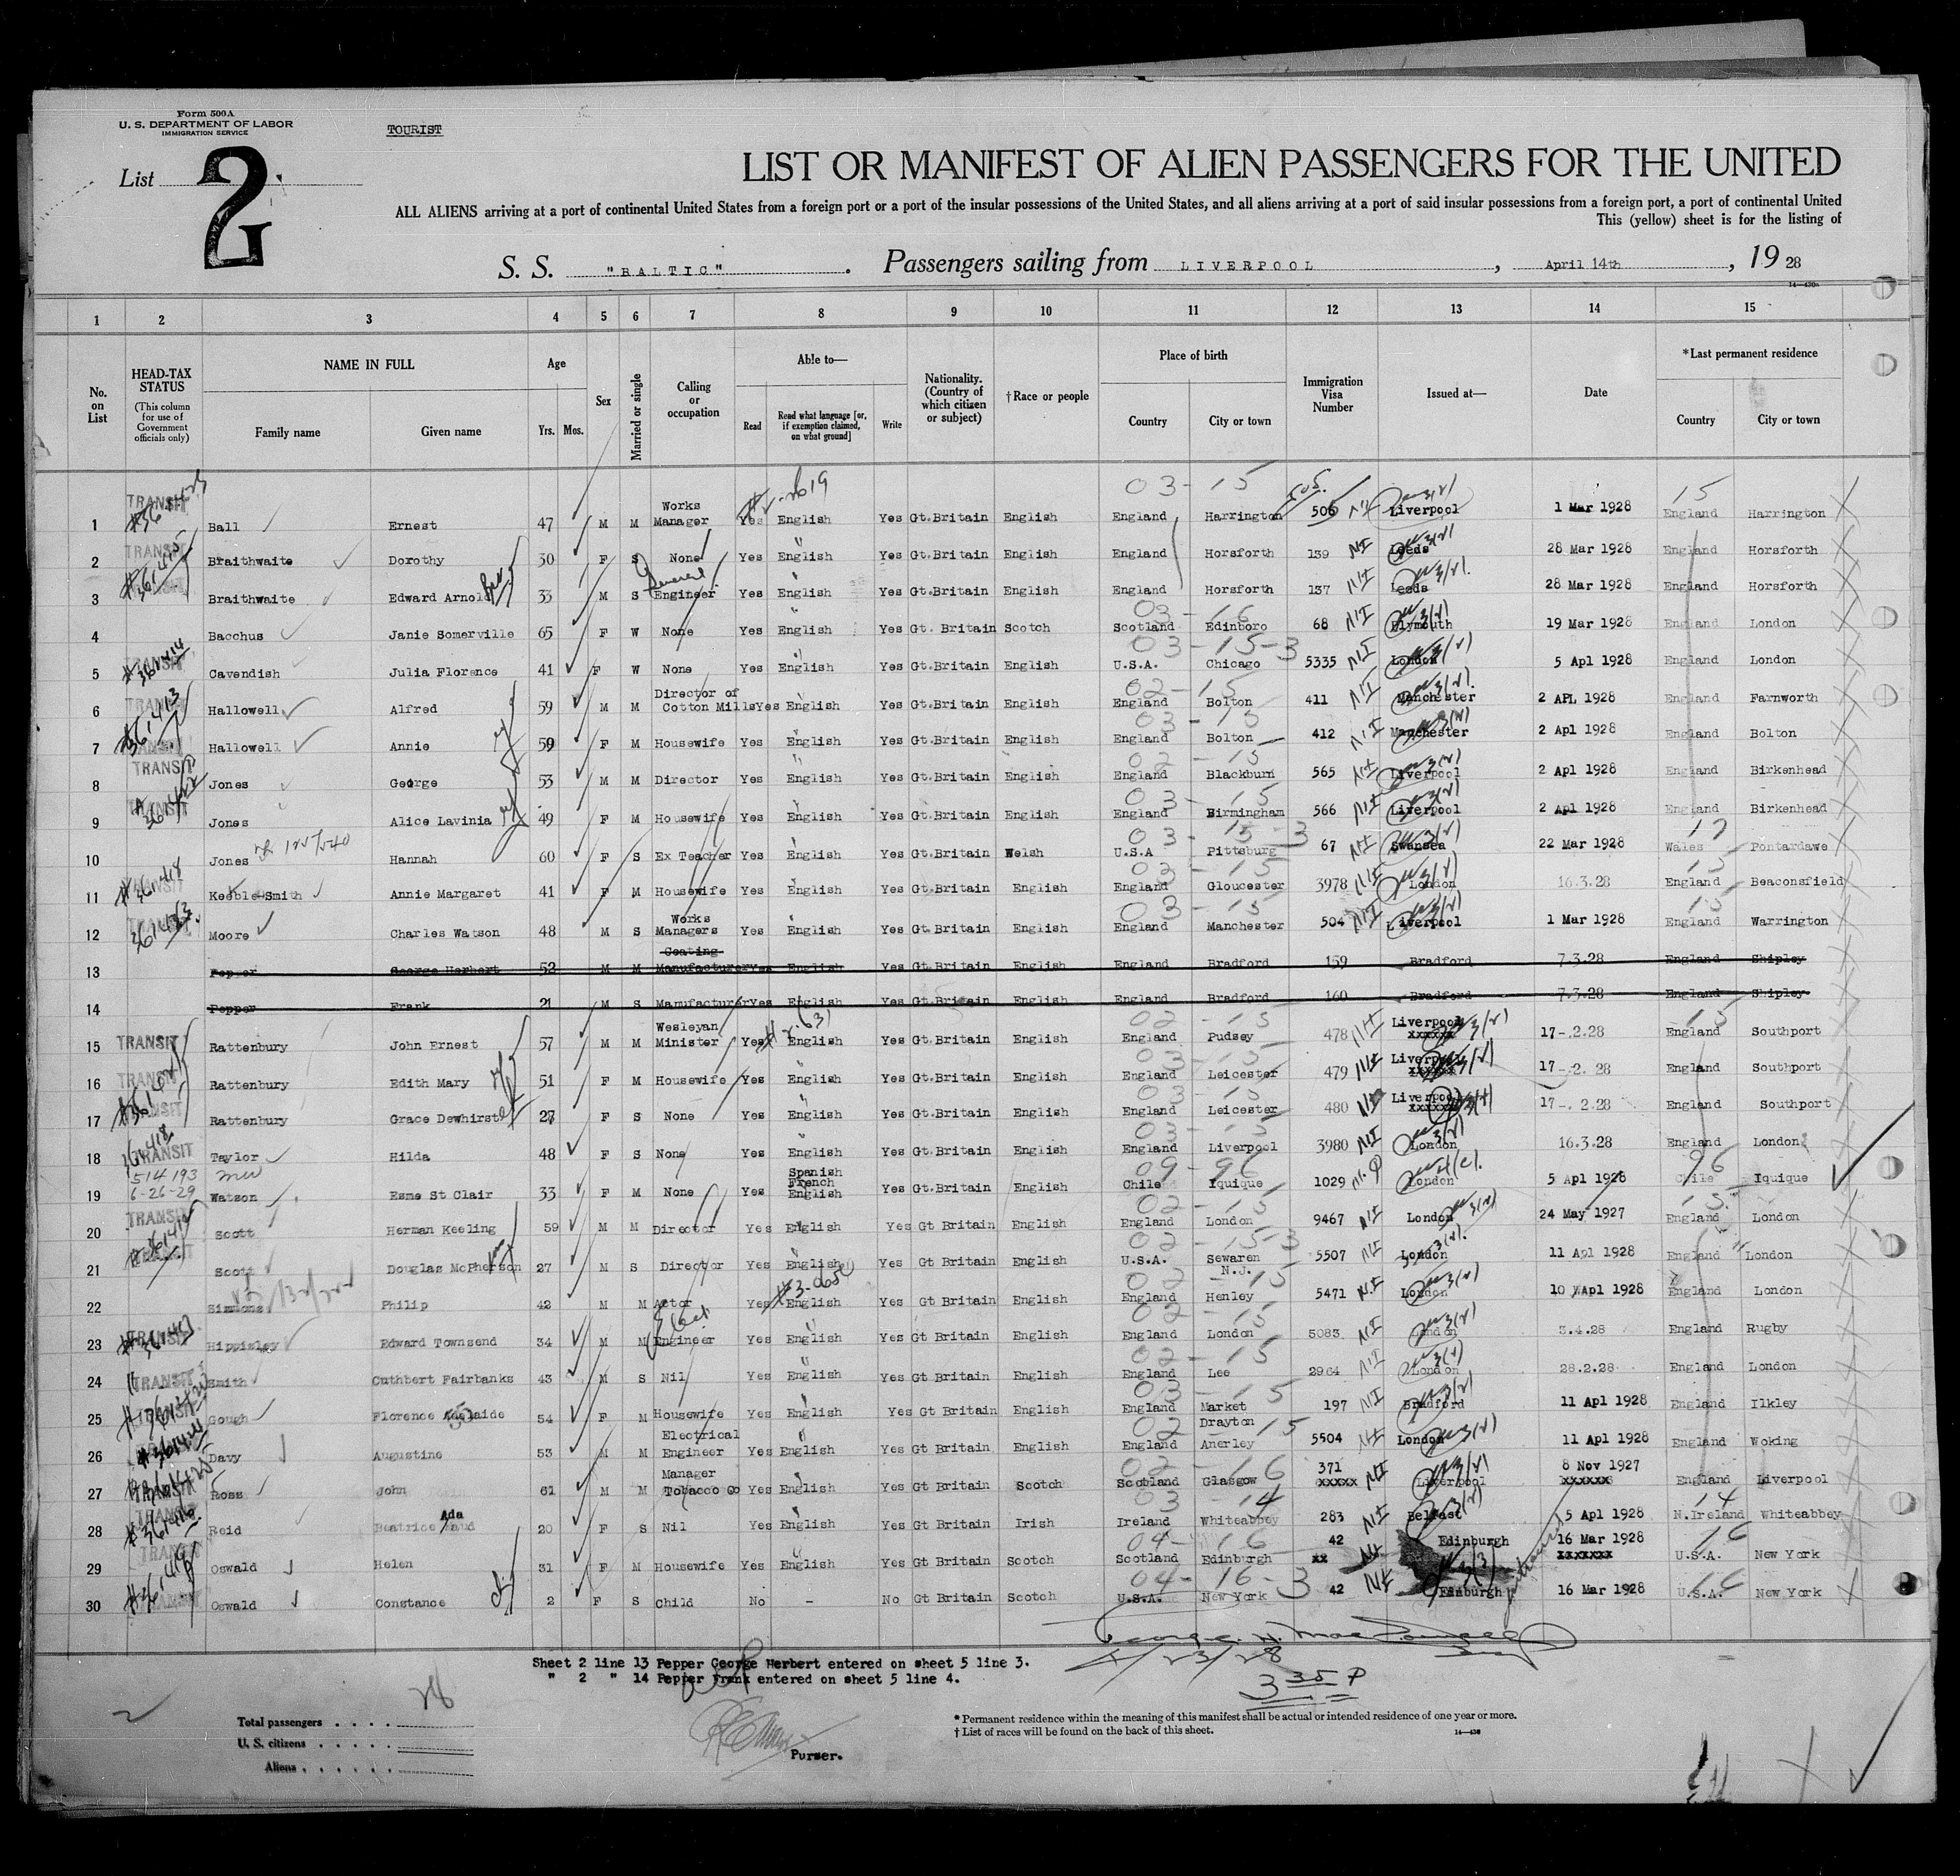 Form 500A
U. S. DEPARTMENT OF LABOR
IMMIGRATION SERVICE
TOURIST
List 2
LIST OR MANIFEST OF ALIEN PASSENGERS FOR THE UNITED
ALL ALIENS arriving at a port of continental United States from a foreign port or a port of the insular possessions of the United States, and all aliens arriving at a port of said insular possessions from a foreign port, a port of continental United
This (yellow) sheet is for the listing of
S. S. "BALTIC" . Passengers sailing from LIVERPOOL , April 14th , 19 28
1 2 3 4 5 6 7 8 9 10 11 12 13 14 15
No. on List
HEAD-TAX STATUS
(This column for use of Government officials only)
NAME IN FULL
Family name Given name
Age
Yrs. Mos.
Sex
Married or single
Calling or occupation
Able to—
Read Read what language [or, if exemption claimed, on what ground] Write
Nationality. (Country of which citizen or subject)
†Race or people
Place of birth
Country City or town
Immigration Visa Number
Issued at—
Date
*Last permanent residence
Country City or town
1 TRANSIT Ball Ernest 47 M M Works Manager Yes English Yes Gt.Britain English England Harrington 506 Liverpool 1 Mar 1928 England Harrington
2 TRANSIT Braithwaite Dorothy 30 F S None Yes English Yes Gt.Britain English England Horsforth 139 Leeds 28 Mar 1928 England Horsforth
3 Braithwaite Edward Arnold 33 M S General Engineer Yes English Yes Gt.Britain English England Horsforth 137 Leeds 28 Mar 1928 England Horsforth
4 Bacchus Janie Somerville 65 F W None Yes English Yes Gt. Britain Scotch Scotland Edinboro 68 Plymouth 19 Mar 1928 England London
5 TRANSIT Cavendish Julia Florence 41 F W None Yes English Yes Gt.Britain English U.S.A. Chicago 5335 London 5 Apl 1928 England London
6 TRANSIT Hallowell Alfred 59 M M Director of Cotton Mills Yes English Yes Gt.Britain English England Bolton 411 Manchester 2 APL 1928 England Farnworth
7 TRANSIT Hallowell Annie 59 F M Housewife Yes English Yes Gt.Britain English England Bolton 412 Manchester 2 Apl 1928 England Bolton
8 TRANSIT Jones George 53 M M Director Yes English Yes Gt.Britain English England Blackburn 565 Liverpool 2 Apl 1928 England Birkenhead
9 TRANSIT Jones Alice Lavinia 49 F M Housewife Yes English Yes Gt.Britain English England Birmingham 566 Liverpool 2 Apl 1928 England Birkenhead
10 Jones Hannah 60 F S Ex Teacher Yes English Yes Gt.Britain Welsh U.S.A Pittsburg 67 Swansea 22 Mar 1928 Wales Pontardawe
11 TRANSIT Keeble-Smith Annie Margaret 41 F M Housewife Yes English Yes Gt.Britain English England Gloucester 3978 London 16.3.28 England Beaconsfield
12 TRANSIT Moore Charles Watson 48 M S Works Managers Yes English Yes Gt.Britain English England Manchester 504 Liverpool 1 Mar 1928 England Warrington
13 Pepper George Herbert 52 M M Coating Manufacturer Yes English Yes Gt.Britain English England Bradford 159 Bradford 7.3.28 England Shipley
14 Pepper Frank 21 M S Manufacturer Yes English Yes Gt.Britain English England Bradford 160 Bradford 7.3.28 England Shipley
15 TRANSIT Rattenbury John Ernest 57 M M Wesleyan Minister Yes English Yes Gt.Britain English England Pudsey 478 Liverpool xxxxxx 17-.2.28 England Southport
16 TRANSIT Rattenbury Edith Mary 51 F M Housewife Yes English Yes Gt.Britain English England Leicester 479 Liverpool xxxxxx 17-.2. 28 England Southport
17 TRANSIT Rattenbury Grace Dewhirst 27 F S None Yes English Yes Gt.Britain English England Leicester 480 Liverpool xxxxxx 17-. 2.28 England Southport
18 TRANSIT Taylor Hilda 48 F S None Yes English Yes Gt.Britain English England Liverpool 3980 London 16.3.28 England London
19 514193 6-26-29 Watson Esme St Clair 33 F M None Yes Spanish French English Yes Gt.Britain English Chile Iquique 1029 London 5 Apl 1928 Chile Iquique
20 TRANSIT Scott Herman Keeling 59 M M Director Yes English Yes Gt Britain English England London 9467 London 24 May 1927 England London
21 TRANSIT Scott Douglas McPherson 27 M S Director Yes English Yes Gt Britain English U.S.A. Sewaren N.J. 5507 London 11 Apl 1928 England London
22 Simmons Philip 42 M M Actor Yes English Yes Gt Britain English England Henley 5471 London 10 Apl 1928 England London
23 TRANSIT Hippisley Edward Townsend 34 M M Elect. Engineer Yes English Yes Gt Britain English England London 5083 London 3.4.28 England Rugby
24 TRANSIT Smith Cuthbert Fairbanks 43 M S Nil Yes English Yes Gt Britain English England Lee 2964 London 28.2.28 England London
25 TRANSIT Gough Florence Adelaide 54 F M Housewife Yes English Yes Gt Britain English England Market Drayton 197 Bradford 11 Apl 1928 England Ilkley
26 Davy Augustine 53 M M Electrical Engineer Yes English Yes Gt Britain English England Anerley 5504 London 11 Apl 1928 England Woking
27 Ross John 61 M M Manager Tobacco Co Yes English Yes Gt Britain Scotch Scotland Glasgow 371 xxxxx Liverpool 8 Nov 1927 xxxxxx England Liverpool
28 TRANSIT Reid Beatrice Ada Maud 20 F S Nil Yes English Yes Gt Britain Irish Ireland Whiteabbey 283 Belfast 5 Apl 1928 N.Ireland Whiteabbey
29 TRANSIT Oswald Helen 31 F M Housewife Yes English Yes Gt Britain Scotch Scotland Edinburgh 42 xx Edinburgh 16 Mar 1928 xxxxxxx U.S.A. New York
30 TRANSIT Oswald Constance 2 F S Child No - No Gt Britain Scotch U.S.A. New York 42 Edinburgh 16 Mar 1928 U.S.A. New York
4/23/28
3 35 P
Sheet 2 line 13 Pepper George Herbert entered on sheet 5 line 3.
" 2 " 14 Pepper Frank entered on sheet 5 line 4.
28
Total passengers . . . .
U. S. citizens . . . . .
Aliens . . . . . .
Purser.
* Permanent residence within the meaning of this manifest shall be actual or intended residence of one year or more.
† List of races will be found on the back of this sheet.